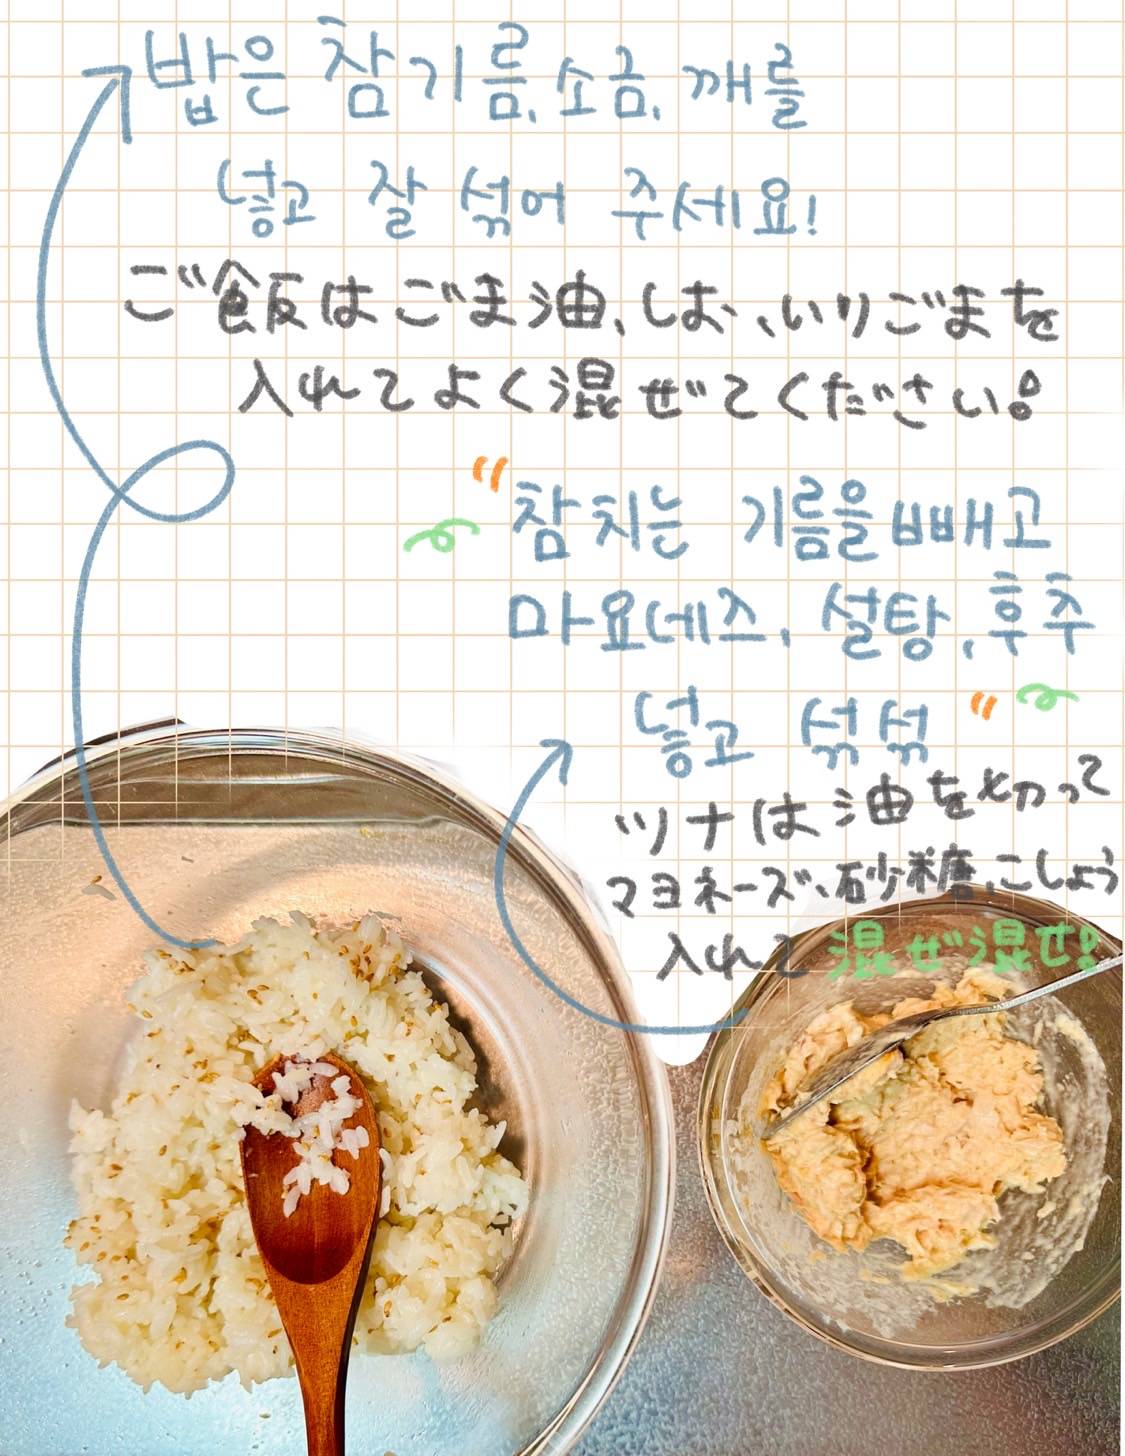 밥은 참기름, 소금, 깨를
넣고 잘 섞어 주세요!
ご飯はごま油、しお、いりごまを
入れてよく混ぜてください。
"참치는 기름을 빼고
마요네즈, 설탕, 후추
넣고 섞섞"
ツナは油を切って
マヨネーズ、砂糖、こしょう
入れて混ぜ混ぜ!